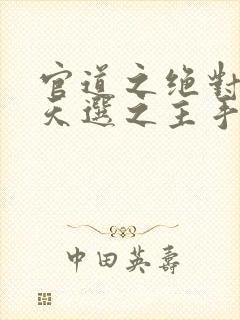 官道之绝對
天選之主手
中田英壽